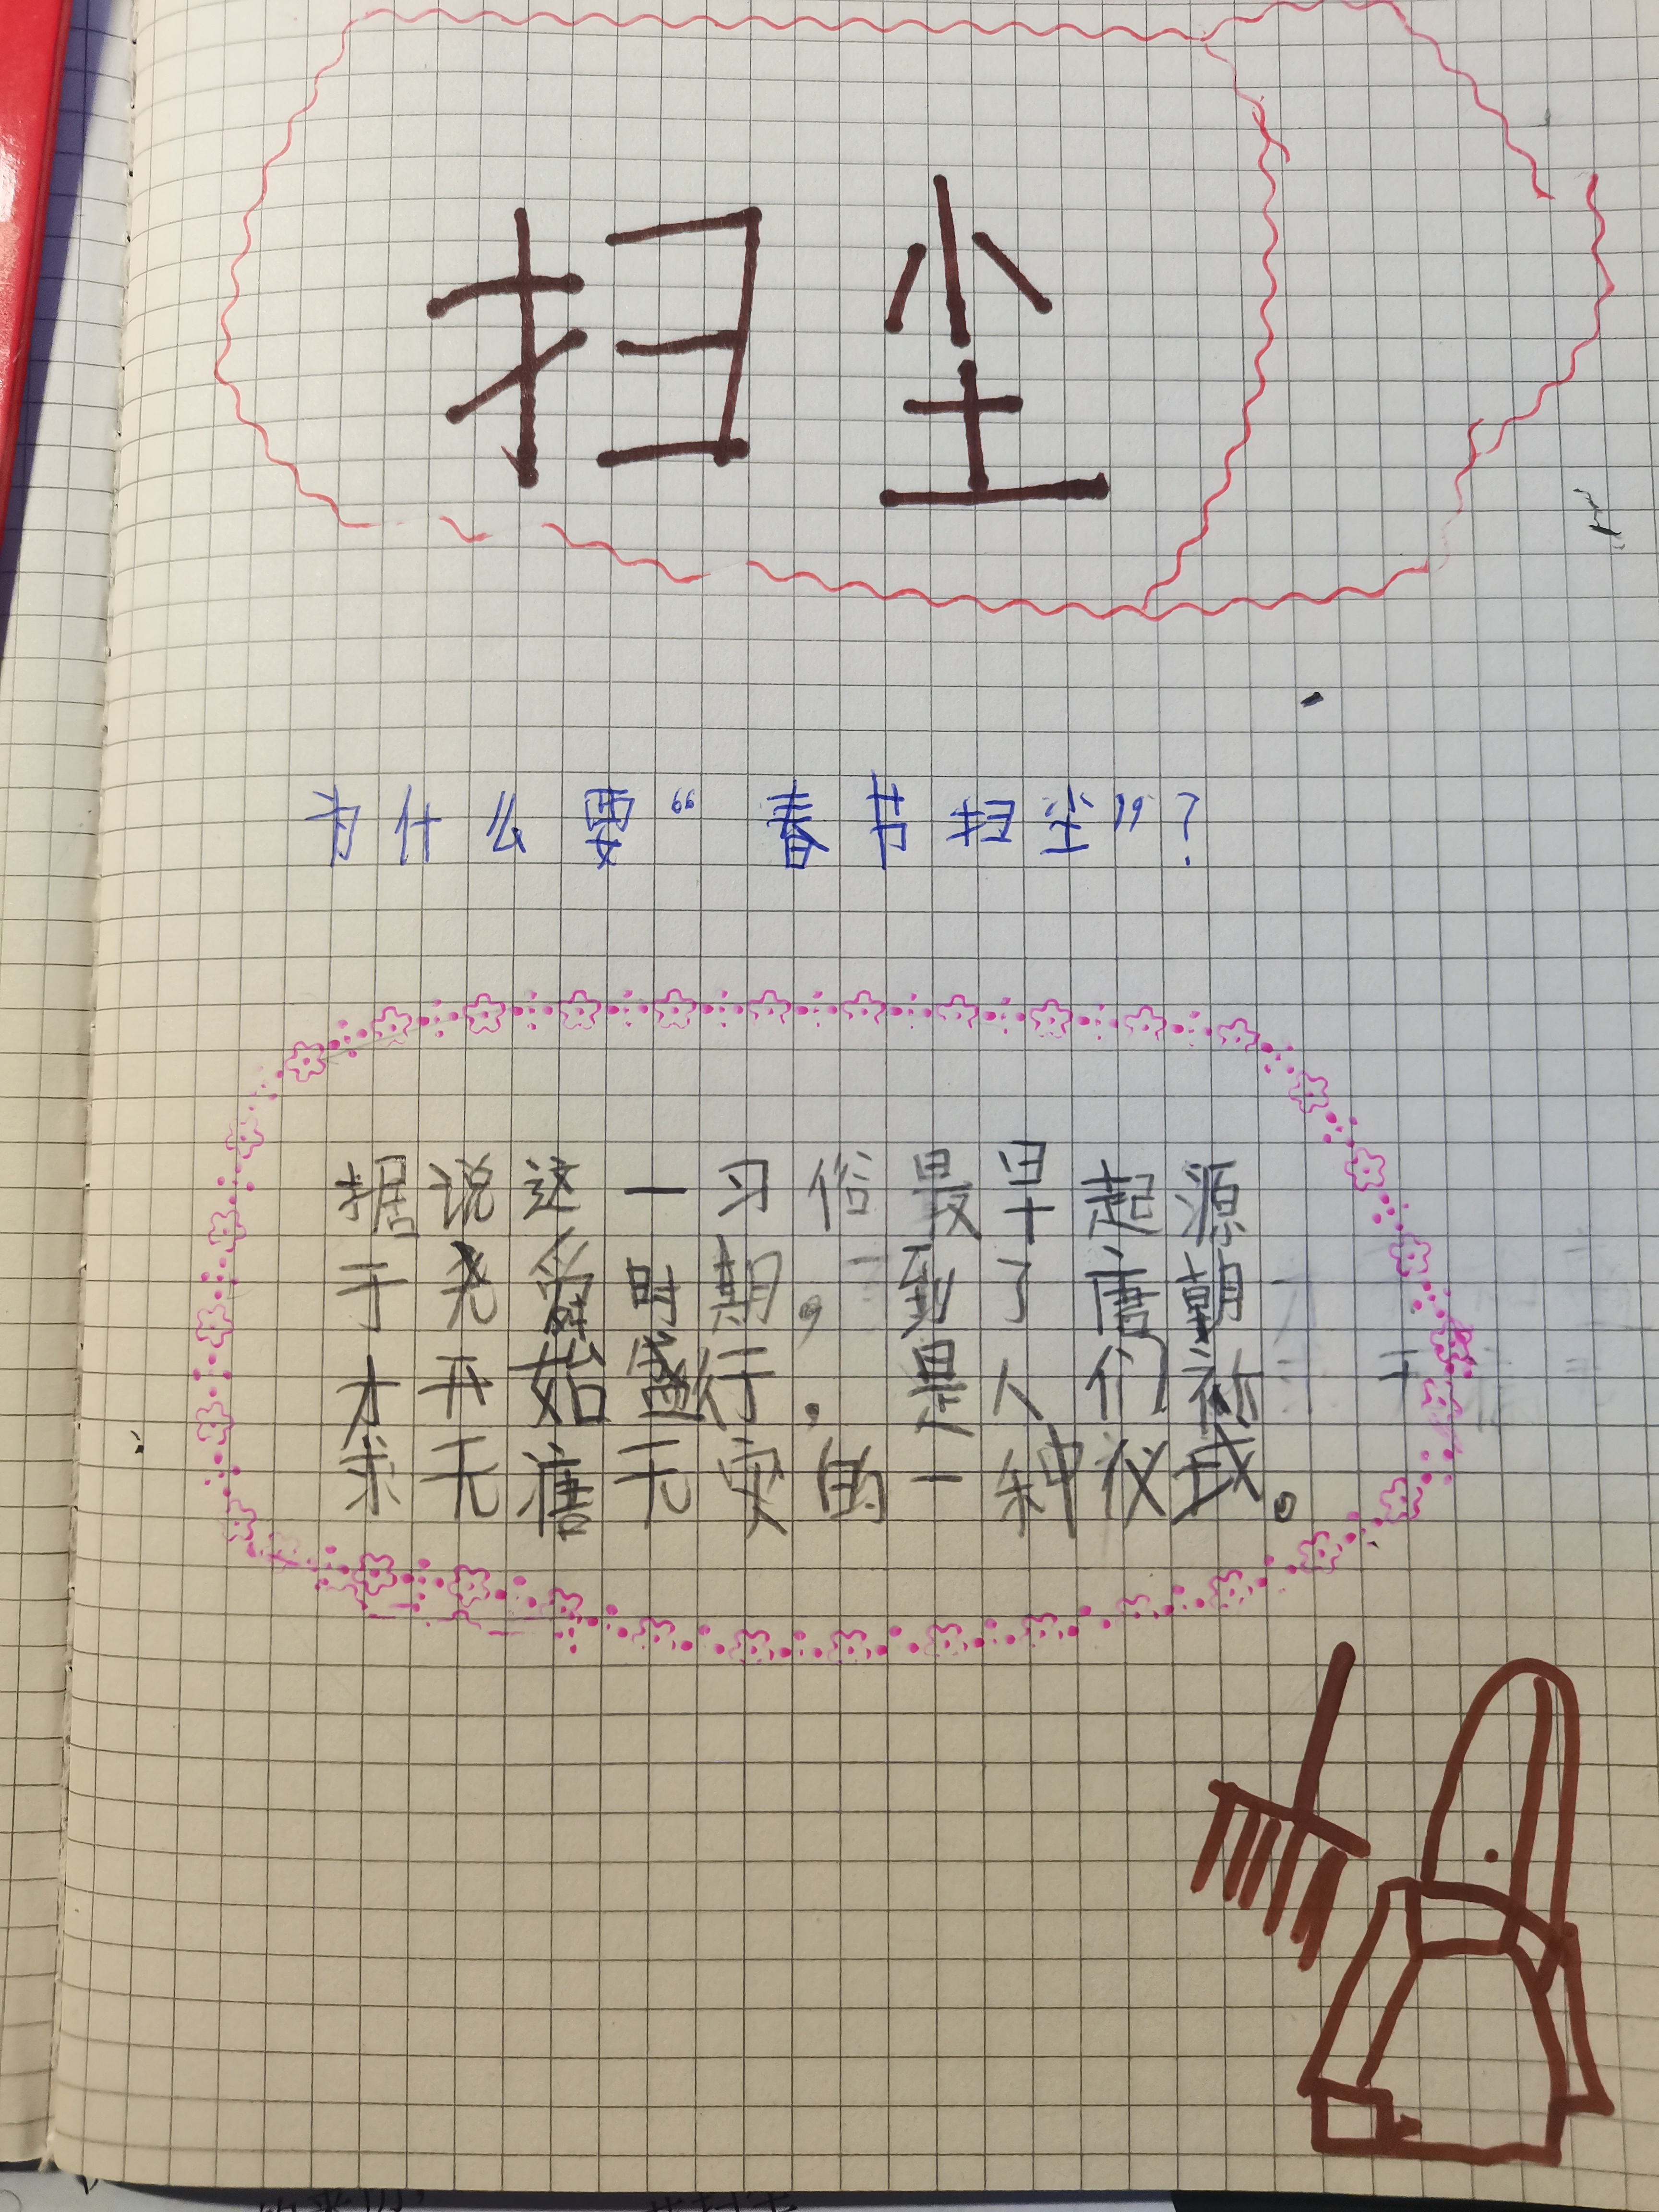 扫尘
为什么要“春节扫尘”？
据说这一习俗最早起源
于尧舜时期，到了唐朝
才开始盛行，是人们祈
求无瘩无灾的一种仪式。